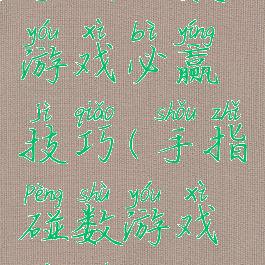 yóu xì bì yíng
游戏必赢
jì qiǎo shǒu zhǐ
技巧(手指
pèng shù yóu xì
碰数游戏